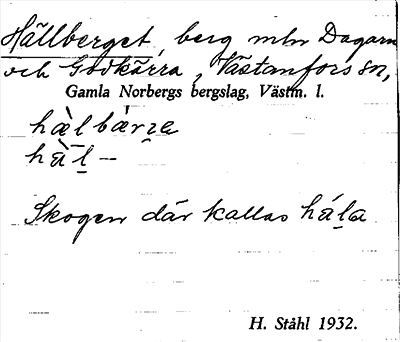 Hällberget, berg mln Dagarn
och Godkärra, Västanfors sn,
Gamla Norbergs bergslag, Västm. l.
hæ̀lbǽrɪ̱a
hæ̀ḻ –
Skogen där kallas háḻa
H. Ståhl 1932.